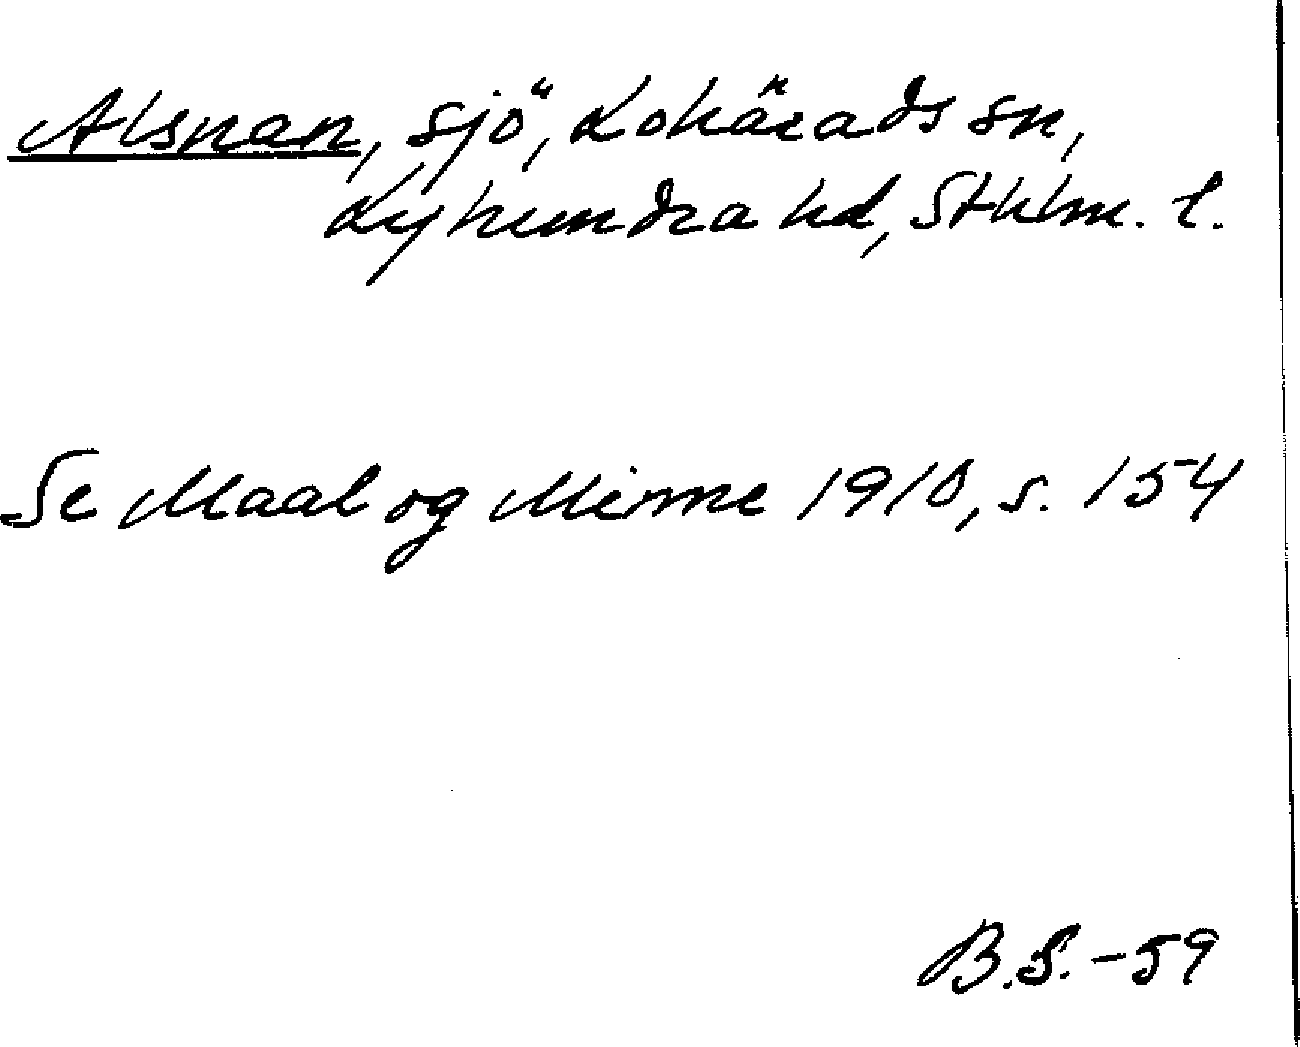 Alsnan, sjö, Lohärads sn,
Lyhundra hd, Sthlm. l.
Se Maal og Minne 1910, s. 154
B.S.-59